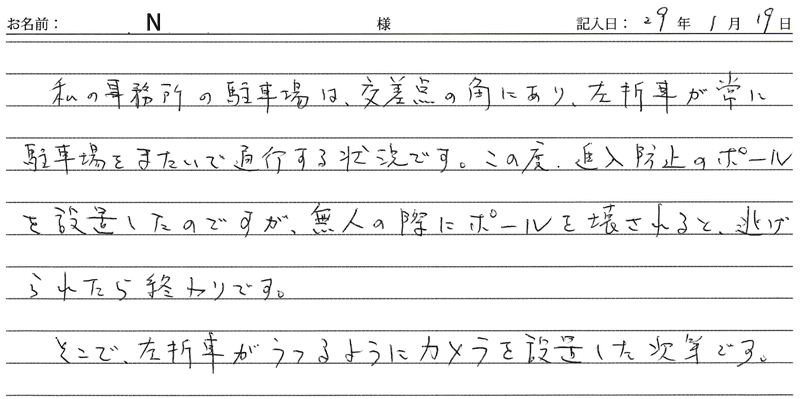 お名前： N 様 記入日： 29 年 1 月 19 日
私の事務所の駐車場は、交差点の角にあり、左折車が常に
駐車場をまたいで通行する状況です。この度、進入防止のポール
を設置したのですが、無人の際にポールを壊されると、逃げ
られたら終わりです。
そこで、左折車がうつるようにカメラを設置した次第です。